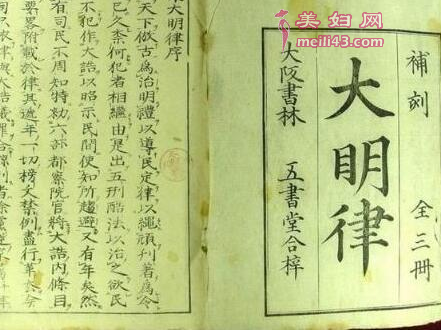 美妇网
meili43.com
補刻 全三冊
大明律
大阪書林 五書堂合梓
大明律序
天下倣古為治明禮以導民定律以繩頑刊著為令
已久奈何犯者相繼由是出五刑酷法以治之欲民
不犯作大誥以昭示民間使知所趨避又有年矣然
有司民不周知特勑六部都察院官將大誥內條目
要畧附載於律其逓年一切榜文禁例盡行革去今
司只依律與大誥議罪合黥刺者除黨逆